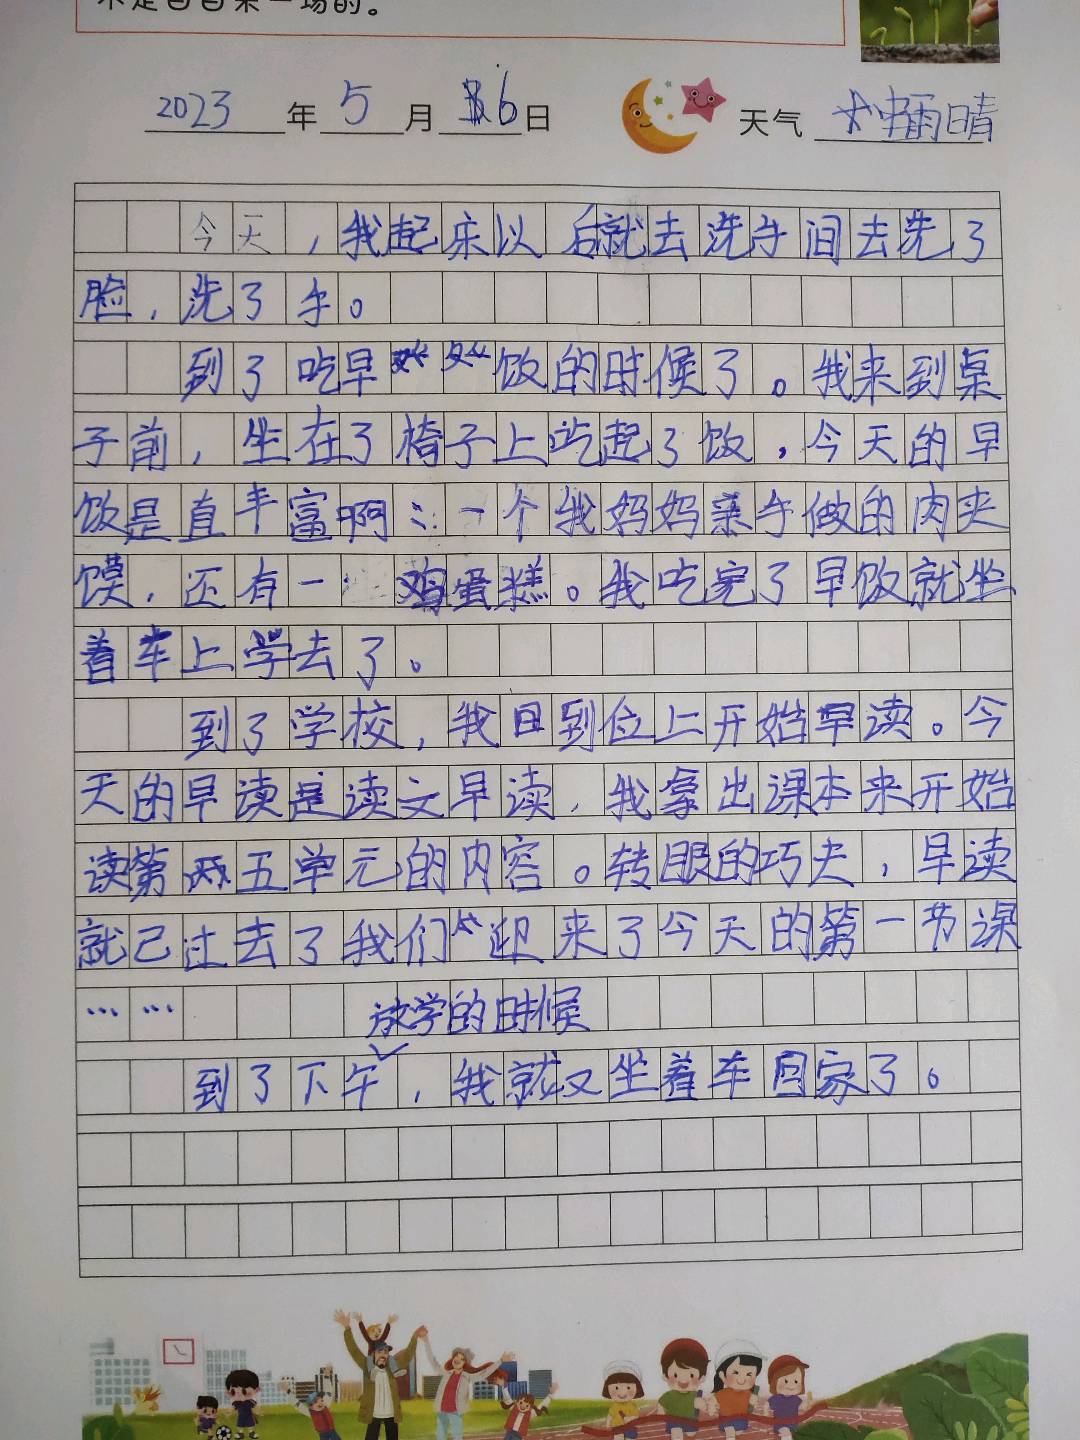 不是白白来一场的。
2023年5月16日 天气 晴
今天，我起床以后就去洗手间去洗了
脸，洗了手。
到了吃早饭的时候了。我来到桌
子前，坐在了椅子上吃起了饭，今天的早
饭是直丰富啊：一个我妈妈亲手做的肉夹
馍，还有一鸡蛋糕。我吃完了早饭就坐
着车上学去了。
到了学校，我回到位上开始早读。今
天的早读是读文早读，我拿出课本来开始
读第五单元的内容。转眼的巧夫，早读
就己过去了我们迎来了今天的第一节课
……
放学的时候
到了下午，我就又坐着车回家了。